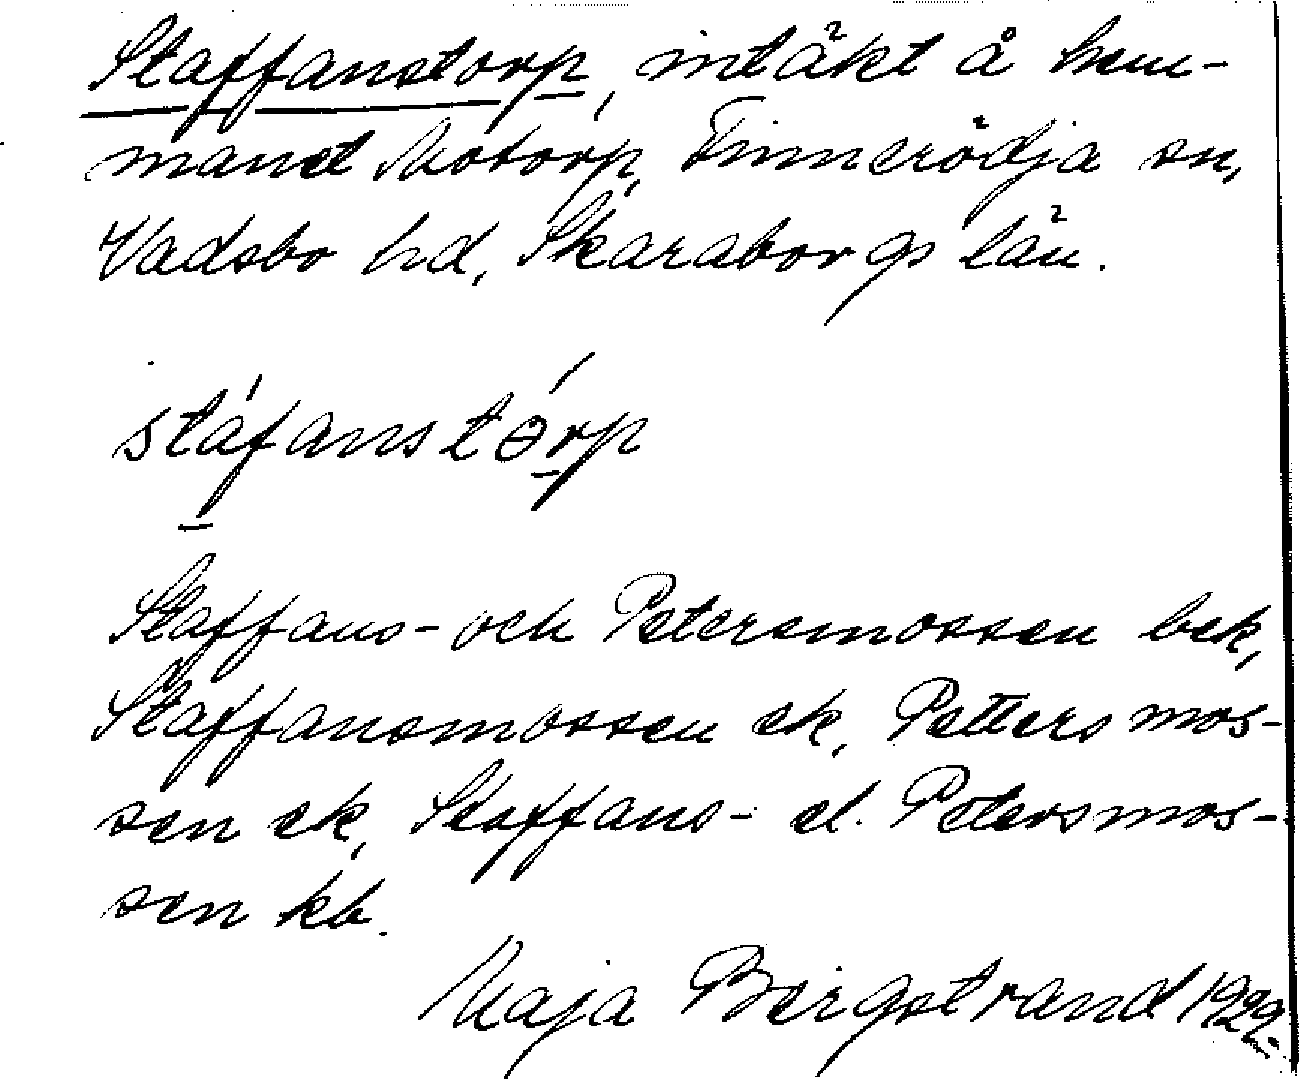 Staffanstorp, intäkt å hem-
manet Motorp, Finnerödja sn,
Vadsbo hd, Skaraborgs län.
stáfanstórp
Staffans- och Petersmossen bek,
Staffansmossen ek, Petters mos-
sen ek, Staffans- el. Petersmos-
sen kb.
Maja Bergstrand 1929.